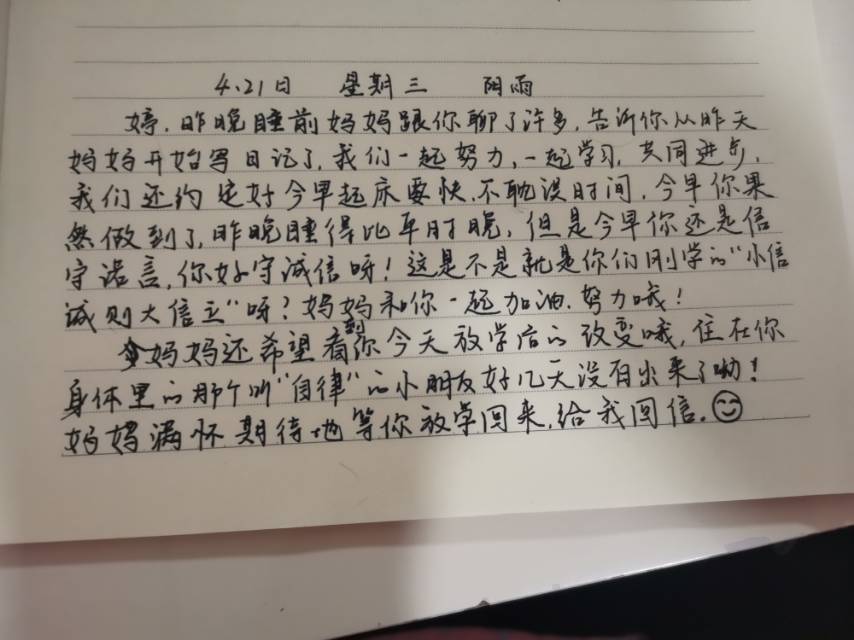 4.21日 星期三 阴雨
婷.昨晚睡前妈妈跟你聊了许多,告诉你从昨天
妈妈开始写日记了,我们一起努力,一起学习,共同进步,
我们还约定好今早起床要快,不耽误时间,今早你果
然做到了,昨晚睡得比平时晚,但是今早你还是信
守诺言,你好守诚信呀!这是不是就是你们刚学的"小信
诚则大信立"呀?妈妈和你一起加油.努力哦!
妈妈还希望看到你今天放学后的改变哦,住在你
身体里的那个叫"自律"的小朋友好几天没有出来了呦!
妈妈满怀期待地等你放学回来,给我回信.